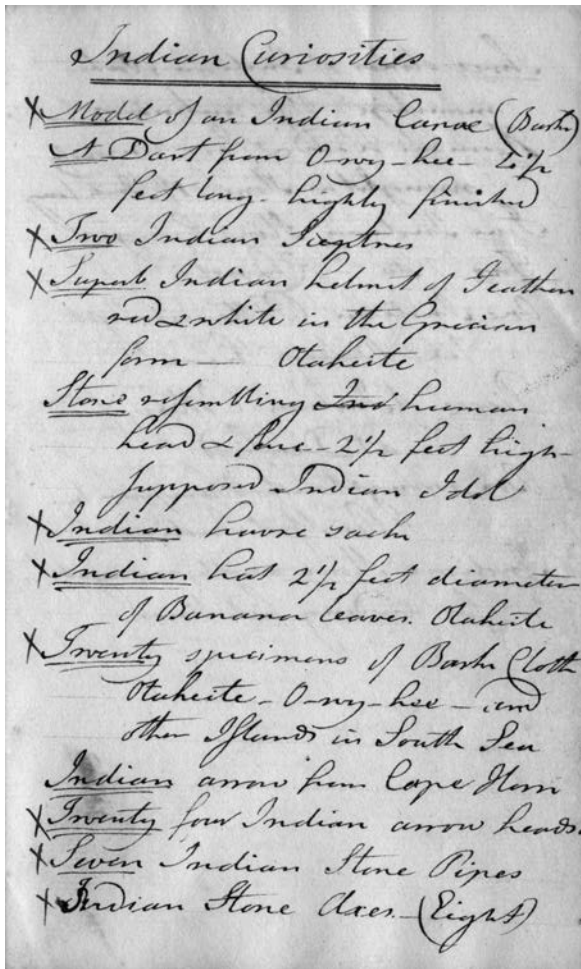 Indian Curiosities
x Model of an Indian Canoe (Bark)
A Dart from O-wy-hee- 4 1/2
feet long- highly finished
x Two Indian
x Superb Indian helmet of Feathers
red & white in the Grecian
form — Otaheite
Stone resembling Ind: human
head & 2 1/2 feet high-
supposed Indian Idol
x Indian havre sack
x Indian hat 2 1/2 feet diameter
of Banana leaves. Otaheite
x Twenty specimens of Bark Cloth
Otaheite - O-wy-hee - and
other Islands in South Sea
Indian arrow from Cape Horn
x Twenty four Indian arrow heads.
x Seven Indian Stone Pipes
x Indian Stone Axes - (Eight)